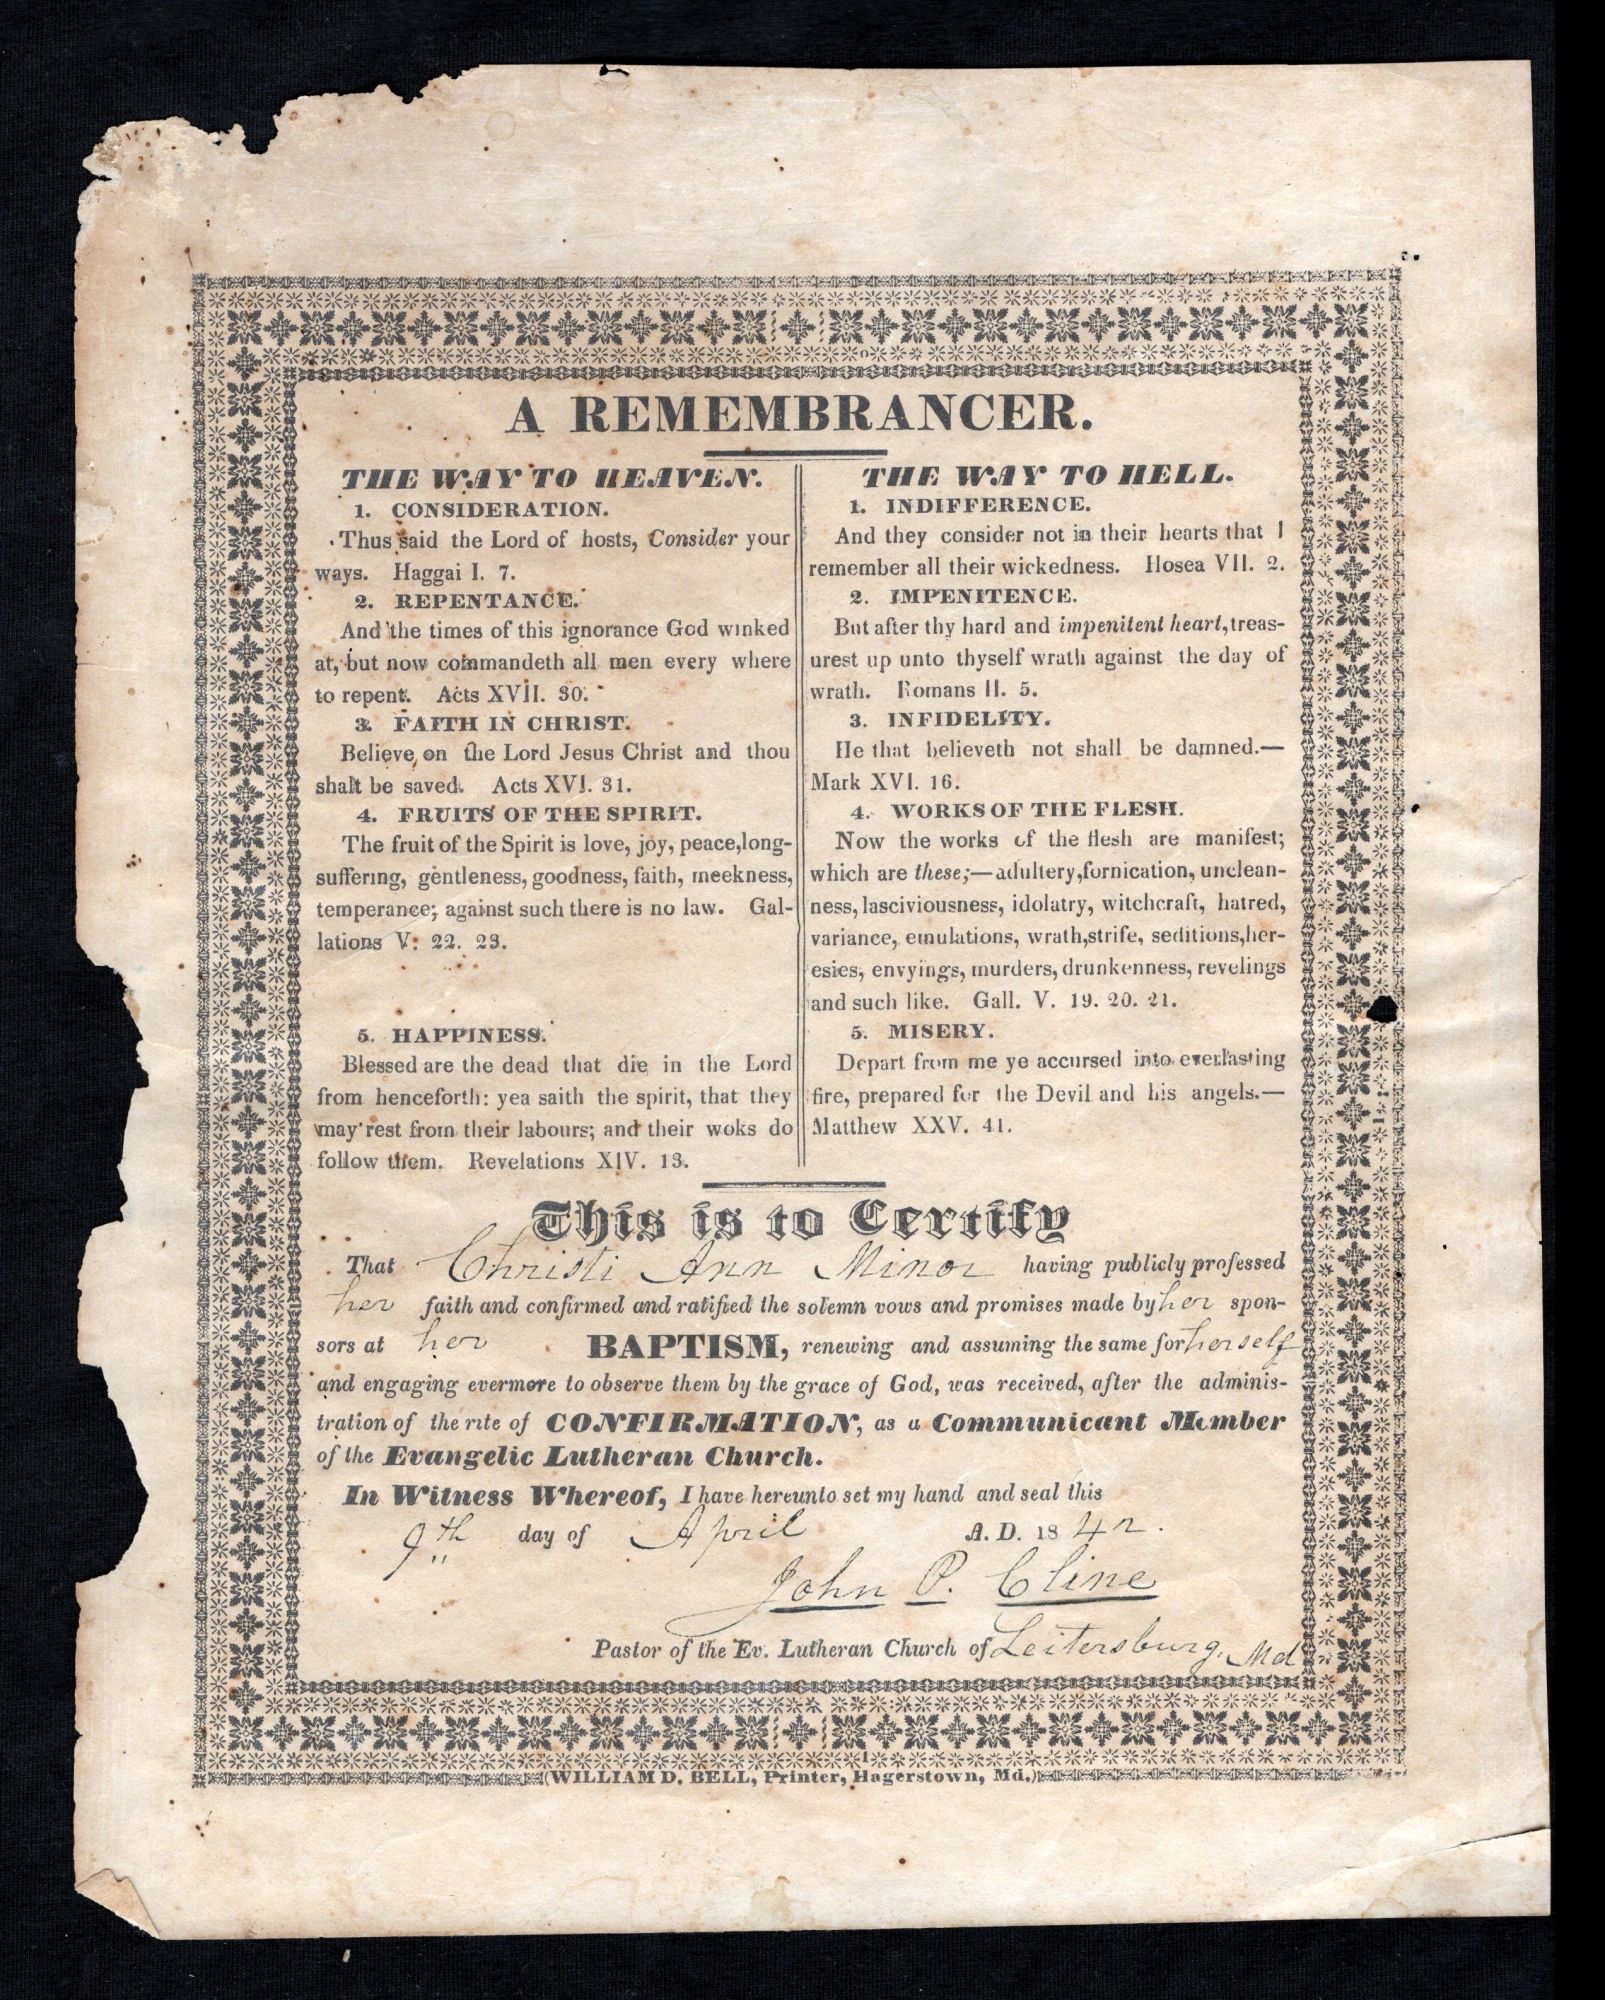 A REMEMBRANCER.
THE WAY TO HEAVEN.
1. CONSIDERATION.
Thus said the Lord of hosts, Consider your
ways. Haggai I. 7.
2. REPENTANCE.
And the times of this ignorance God winked
at, but now commandeth all men every where
to repent. Acts XVII. 30.
3. FAITH IN CHRIST.
Believe on the Lord Jesus Christ and thou
shalt be saved. Acts XVI. 31.
4. FRUITS OF THE SPIRIT.
The fruit of the Spirit is love, joy, peace, long-
suffering, gentleness, goodness, faith, meekness,
temperance; against such there is no law. Gal-
lations V. 22. 23.
5. HAPPINESS.
Blessed are the dead that die in the Lord
from henceforth: yea saith the spirit, that they
may rest from their labours; and their woks do
follow them. Revelations XIV. 13.
THE WAY TO HELL.
1. INDIFFERENCE.
And they consider not in their hearts that I
remember all their wickedness. Hosea VII. 2.
2. IMPENITENCE.
But after thy hard and impenitent heart, treas-
urest up unto thyself wrath against the day of
wrath. Romans II. 5.
3. INFIDELITY.
He that believeth not shall be damned.—
Mark XVI. 16.
4. WORKS OF THE FLESH.
Now the works of the flesh are manifest;
which are these;—adultery, fornication, unclean-
ness, lasciviousness, idolatry, witchcraft, hatred,
variance, emulations, wrath, strife, seditions, her-
esies, envyings, murders, drunkenness, revelings
and such like. Gall. V. 19. 20. 21.
5. MISERY.
Depart from me ye accursed into everlasting
fire, prepared for the Devil and his angels.—
Matthew XXV. 41.
This is to Certify
That Christi Ann Minor having publicly professed
her faith and confirmed and ratified the solemn vows and promises made by her spon-
sors at her BAPTISM, renewing and assuming the same for herself
and engaging evermore to observe them by the grace of God, was received, after the adminis-
tration of the rite of CONFIRMATION, as a Communicant Member
of the Evangelic Lutheran Church.
In Witness Whereof, I have hereunto set my hand and seal this
9th day of April A. D. 1842.
John P. Cline
Pastor of the Ev. Lutheran Church of Leitersburg, Md
(WILLIAM D. BELL, Printer, Hagerstown, Md.)